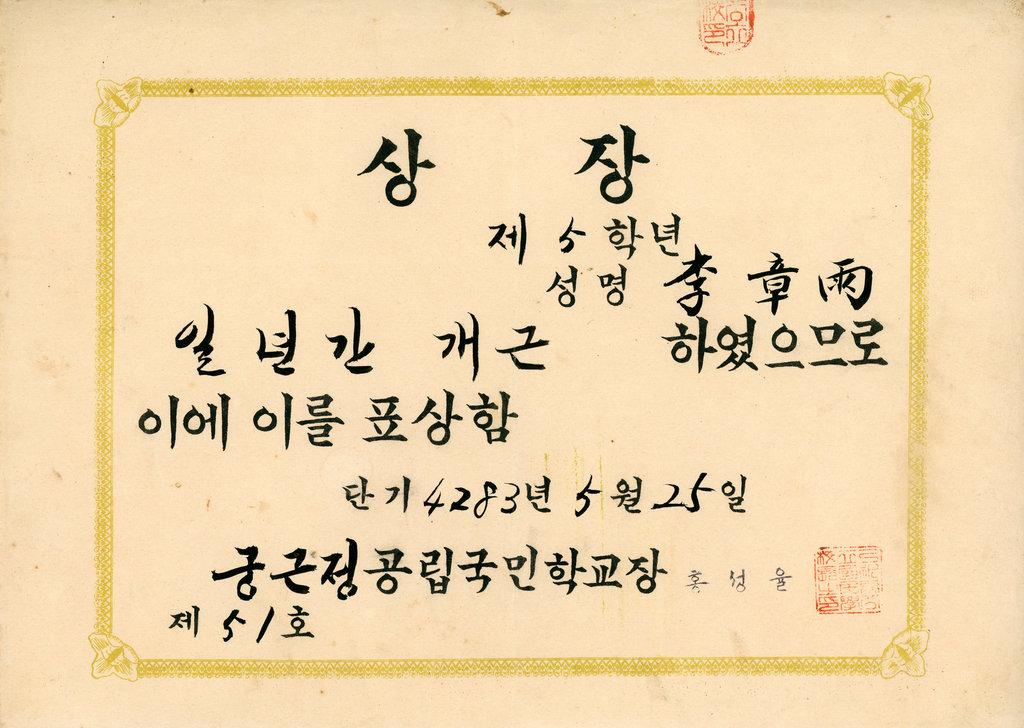 상 장
제 5 학년
성명 李章雨
일년간 개근 하였으므로
이에 이를 표상함
단기 4283년 5월 25일
궁근정공립국민학교장 홍성율
제 51 호